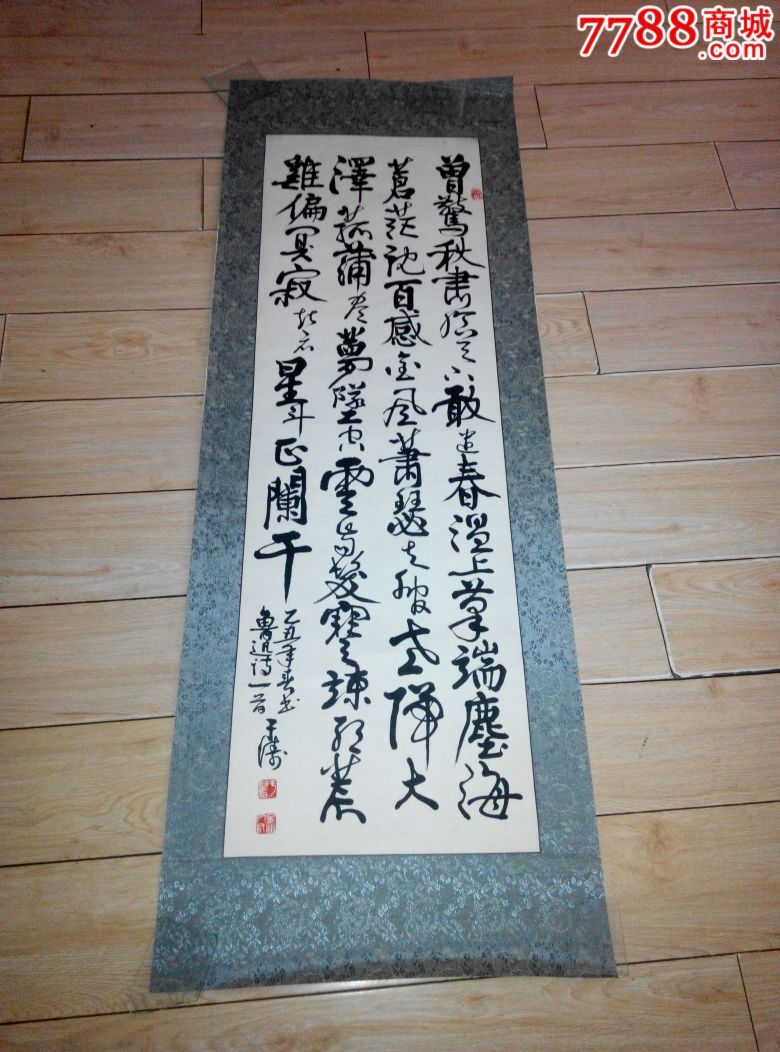 7788商城
.com
曾驚秋肅臨天下敢遣春溫上筆端塵海
蒼茫沈百感金風蕭瑟走千官老歸大
澤菰蒲盡夢墜空雲齒髮寒竦聽荒
雞偏闃寂起看星斗正闌干
乙丑年春書
魯迅詩一首